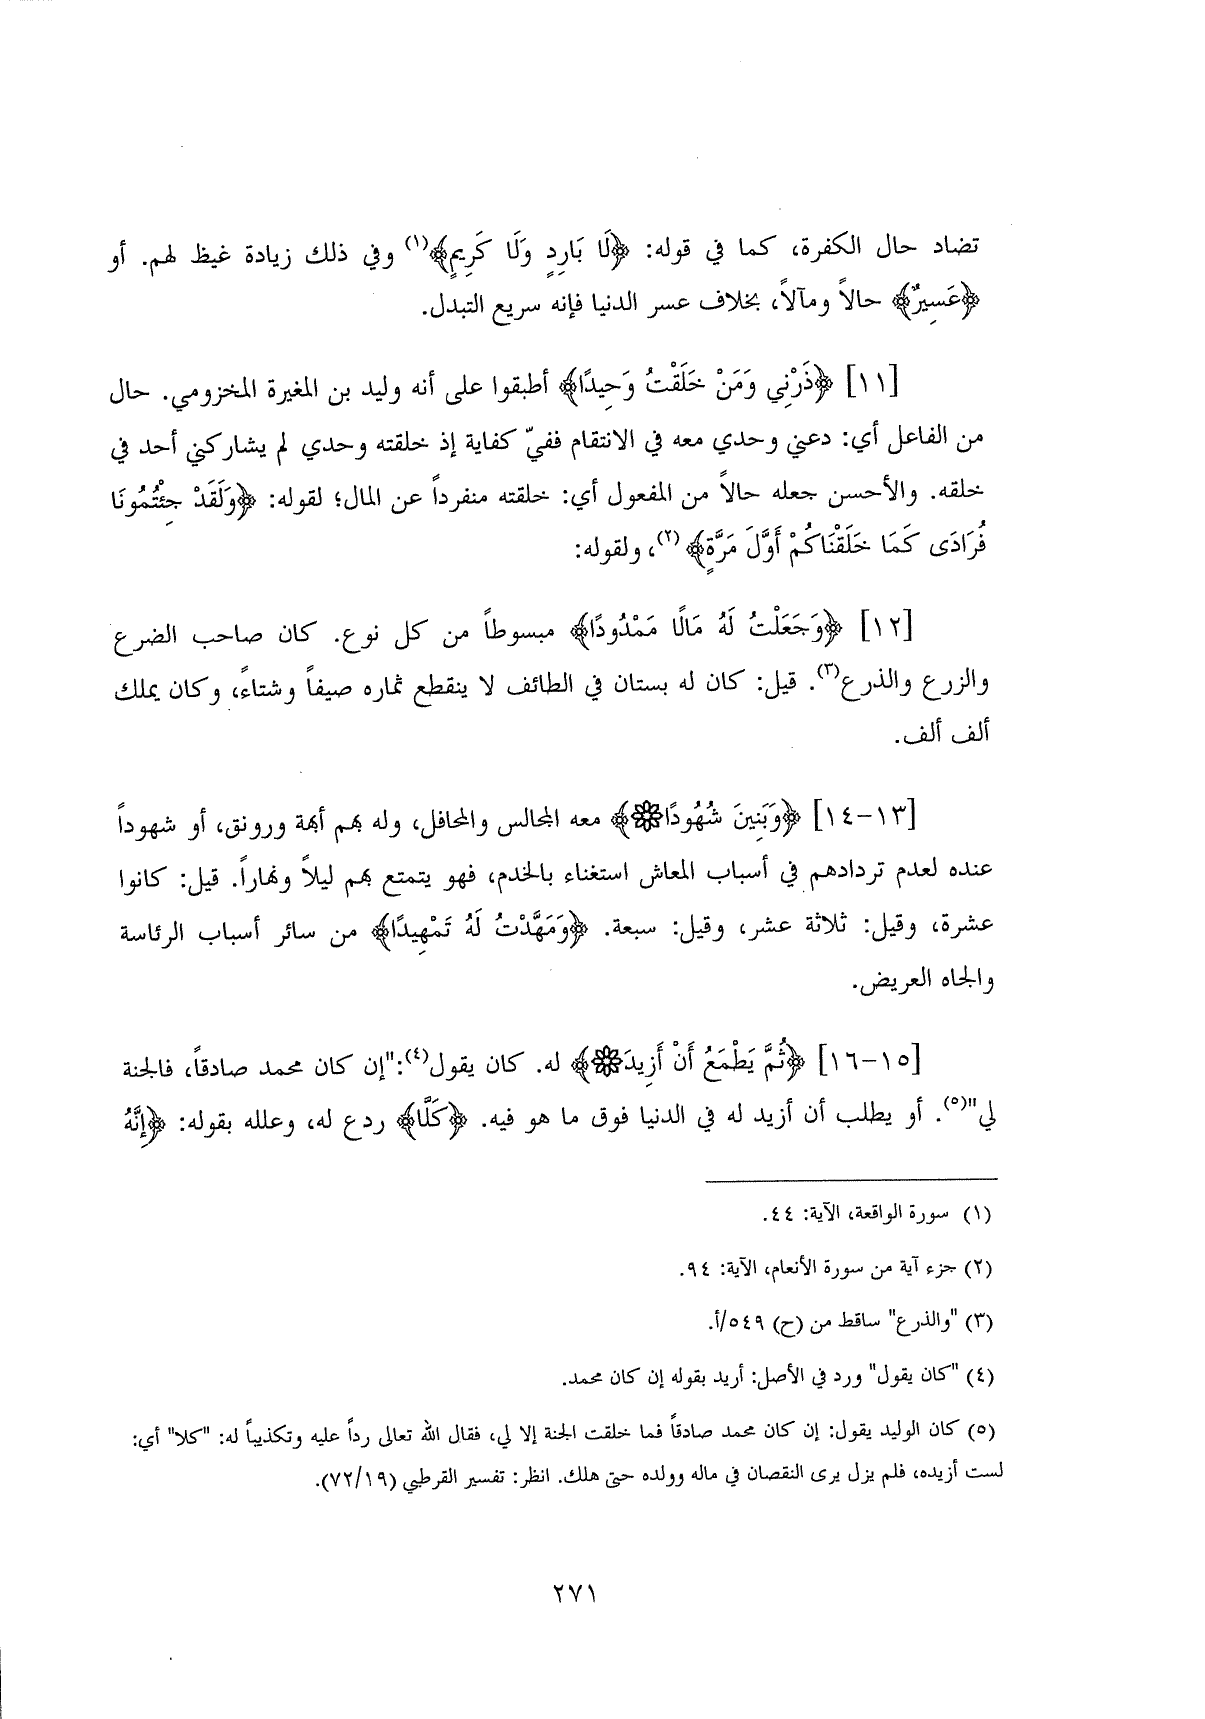 تضاد حال الكفرة، كما في قوله: ﴿لَا بَارِدٍ وَلَا كَرِيمٍ﴾(١) وفي ذلك زيادة غيظ لهم. أو
﴿عَسِيرٌ﴾ حالاً ومآلاً، بخلاف عسر الدنيا فإنه سريع التبدل.
[١١] ﴿ذَرْنِي وَمَنْ خَلَقْتُ وَحِيدًا﴾ أطبقوا على أنه وليد بن المغيرة المخزومي. حال
من الفاعل أي: دعني وحدي معه في الانتقام ففيّ كفاية إذ خلقته وحدي لم يشاركني أحد في
خلقه. والأحسن جعله حالاً من المفعول أي: خلقته منفرداً عن المال؛ لقوله: ﴿وَلَقَدْ جِئْتُمُونَا
فُرَادَى كَمَا خَلَقْنَاكُمْ أَوَّلَ مَرَّةٍ﴾(٢)، ولقوله:
[١٢] ﴿وَجَعَلْتُ لَهُ مَالًا مَمْدُودًا﴾ مبسوطاً من كل نوع. كان صاحب الضرع
والزرع والذرع(٣). قيل: كان له بستان في الطائف لا ينقطع ثماره صيفاً وشتاءً، وكان يملك
ألف ألف.
[١٣-١٤] ﴿وَبَنِينَ شُهُودًا۝﴾ معه المجالس والمحافل، وله بهم أبهة ورونق، أو شهوداً
عنده لعدم تردادهم في أسباب المعاش استغناء بالخدم، فهو يتمتع بهم ليلاً ونهاراً. قيل: كانوا
عشرة، وقيل: ثلاثة عشر، وقيل: سبعة. ﴿وَمَهَّدْتُ لَهُ تَمْهِيدًا﴾ من سائر أسباب الرئاسة
والجاه العريض.
[١٥-١٦] ﴿ثُمَّ يَطْمَعُ أَنْ أَزِيدَ۝﴾ له. كان يقول(٤):"إن كان محمد صادقاً، فالجنة
لي"(٥). أو يطلب أن أزيد له في الدنيا فوق ما هو فيه. ﴿كَلَّا﴾ ردع له، وعلله بقوله: ﴿إِنَّهُ
(١) سورة الواقعة، الآية: ٤٤.
(٢) جزء آية من سورة الأنعام، الآية: ٩٤.
(٣) "والذرع" ساقط من (ح) ٥٤٩/أ.
(٤) "كان يقول" ورد في الأصل: أريد بقوله إن كان محمد.
(٥) كان الوليد يقول: إن كان محمد صادقاً فما خلقت الجنة إلا لي، فقال الله تعالى رداً عليه وتكذيباً له: "كلا" أي:
لست أزيده، فلم يزل يرى النقصان في ماله وولده حتى هلك. انظر: تفسير القرطبي (٧٢/١٩).
٢٧١